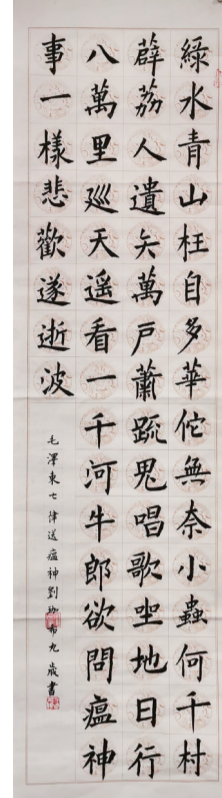 綠水青山枉自多華佗無奈小蟲何千村
薜荔人遺矢萬戶蕭疏鬼唱歌坐地日行
八萬里廵天遙看一千河牛郎欲問瘟神
事一樣悲歡遂逝波
毛澤東七律送瘟神劉 希九歲書